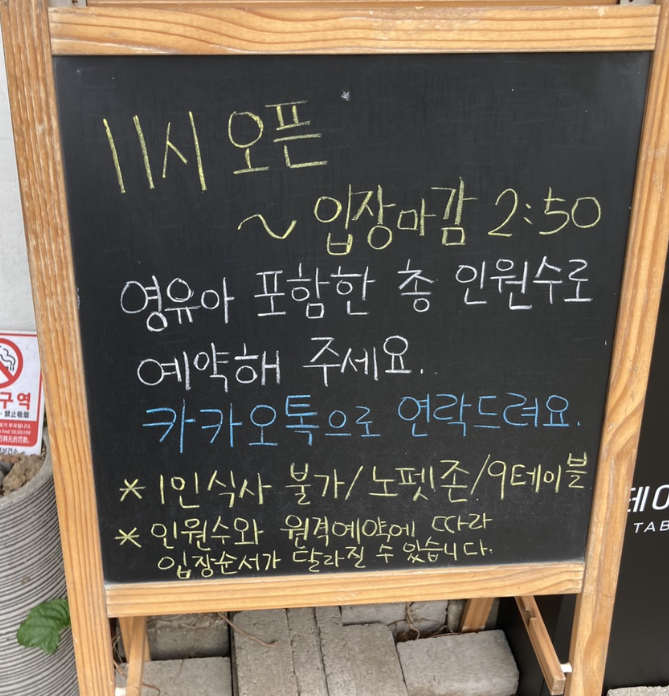 11시 오픈
~ 입장마감 2:50
영유아 포함한 총 인원수로
예약해 주세요..
카카오톡으로 연락드려요.
* 1인식사 불가/노펫존/9테이블
* 인원수와 원격예약에 따라
입장순서가 달라질 수 있습니다.
구역
禁止吸烟
테이
TAB